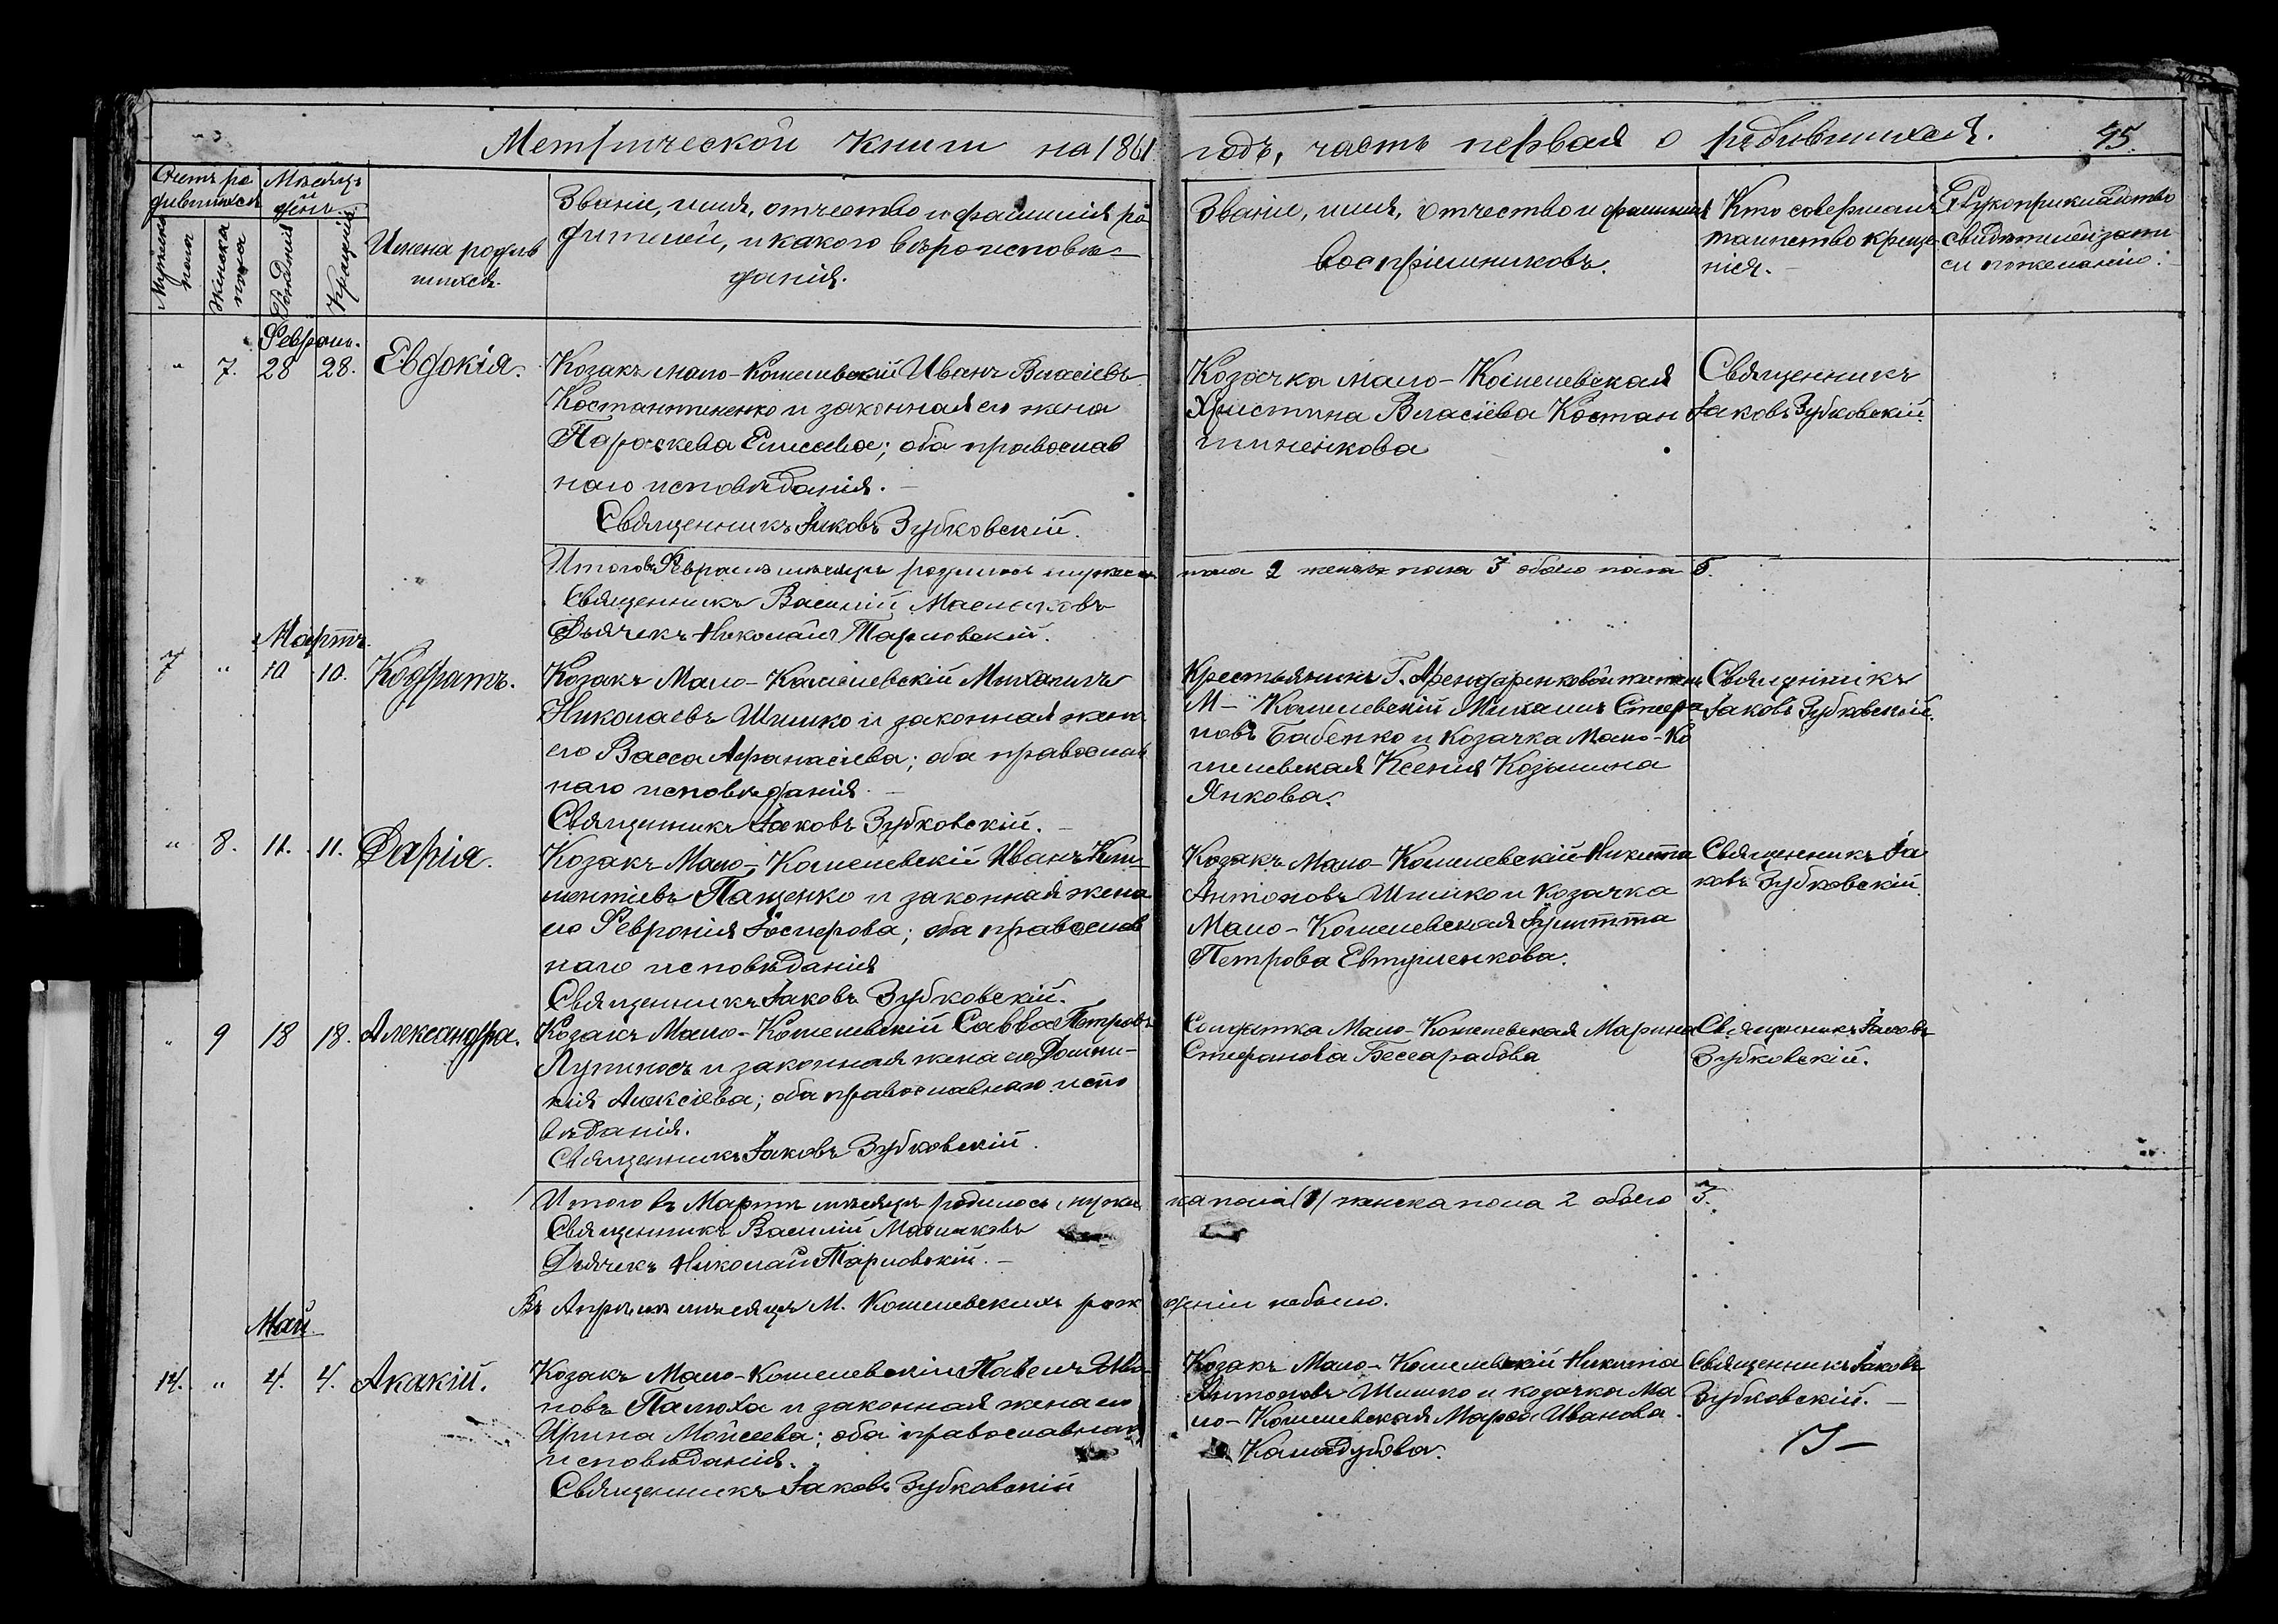 Метрической книги на 1861 годъ, часть первая о родившихся. 45.
Счетъ ро
дившихся
Мужеска
пола
Женска
пола
Мѣсяцъ
и
день.
Рожденія
Крещенія
Имена родив
шихся.
Званіе, имя, отчество и фамилія ро
дителей, и какого вѣроисповѣ-
данія.
Званіе, имя, отчество и фамилія
воспріемниковъ.
Кто совершалъ
таинство креще
нія.-
Рукоприкладство
свидѣтелей запи
си по желанію.
Февраль.
" 7. 28 28. Евдокія.
Козакъ мало-Кошелевскій Иванъ Власіевъ
Костантиненко и законная его жена
Параскева Елисѣева; оба православ
наго исповѣданія.-
Священникъ Іаковъ Зубковскій.
Козачка мало-Кошелевская
Христина Власіева Костан
тиненкова
Священникъ
Іаковъ Зубковскій.
Итого въ Февралѣ мѣсяцѣ родилось мужеска пола 2 женска пола 3 обоего пола 5.
Священникъ Василій Масюковъ
Дьячекъ Николай Тарновскій.
Мартъ.
7 " 10 10. Кодратъ.
Козакъ Мало-Кошелевскій Михаилъ
Николаевъ Шишко и законная жена
его Васса Афанасіева; оба православ
наго исповѣданія.-
Священникъ Іаковъ Зубковскій.
Крестьянинъ Г. Арендаренковой житель
М- Кошелевскій Михаилъ Стефа
новъ Бабенко и козачка Мало-Ко
шелевская Ксенія Козьмина
Янкова.
Священникъ
Іаковъ Зубковскій.
" 8. 11. 11. Дарія.
Козакъ Мало-Кошелевскій Иванъ Кли-
ментіевъ Пащенко и законная жена
его Февронія Іосифова; оба православ
наго исповѣданія
Священникъ Іаковъ Зубковскій.
Козакъ Мало-Кошелевскій Никита
Антоновъ Шишко и козачка
Мало-Кошелевская Іулитта
Петрова Евтушенкова.
Священникъ Іа
ковъ Зубковскій.
" 9 18 18. Александра.
Козакъ Мало-Кошелевскій Савва Петровъ
Лупиносъ и законная жена его Домни-
кія Алексіева; оба православнаго испо
вѣданія.
Священникъ Іаковъ Зубковскій.
Солдатка Мало-Кошелевская Марина
Стефанова Бессарабова
Священникъ Іаковъ
Зубковскій.
Итого въ Мартѣ мѣсяцѣ родилось мужескa пола (1) женска пола 2 обоего 3.
Священникъ Василій Масюковъ
Дьячекъ Николай Тарновскій.-
Въ Апрѣлѣ мѣсяцѣ М. Кошелевскихъ рожденіи небыло.
Май.
14. " 4. 4. Акакій.
Козакъ Мало-Кошелевскій Павелъ Ива-
новъ Палюха и законная жена его
Ирина Мойсеева; оба православнаго
исповѣданія.
Священникъ Іаковъ Зубковскій
Козакъ Мало-Кошелевскій Никита
Антоновъ Шишко и козачка Ма
ло-Кошелевская Марѳа Иванова
Каладубова.
Священникъ Іаковъ
Зубковскій.-